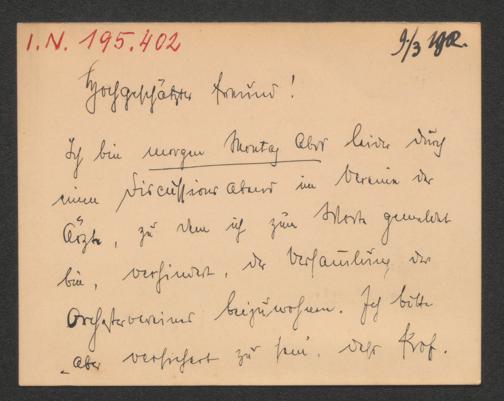 I.N. 195.402
9/3
Hochgeschätzter Freund!
Ich bin morgen Montag Abds leider durch
einen Discussions Abend im Vereine der
Ärzte, zu dem ich zum Worte gemeldet
bin, verhindert, der Versammlung des
Orchestervereines beizuwohnen. Ich bitte
aber versichert zu sein, dass Prof.